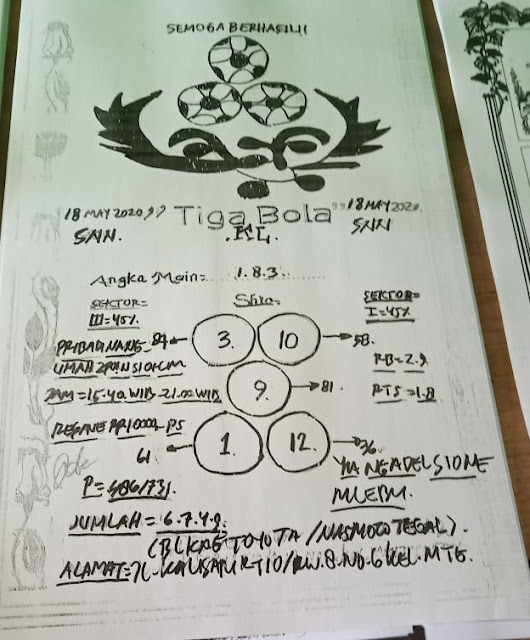 SEMOGA BERHASIL!!
18 MAY 2020,, Tiga Bola "18 MAY 2020.
SNN. SNN
Angka Main= 1.8.3
SEKTOR= Shio= SEKTOR=
III=45%. I=45%
84 3. 10 58.
RB=2.9.
JAM=15.40 WIB-21.00WIB 9. 81. RTS=1.8
61 1. 12. 36
P=486/731.
JUMLAH=6.7.4.9.
(BLKNG TOYOTA/NASMOCO TEGAL).
ALAMAT=JL. RT10/RW.8.NO.6 KEL.MTG.